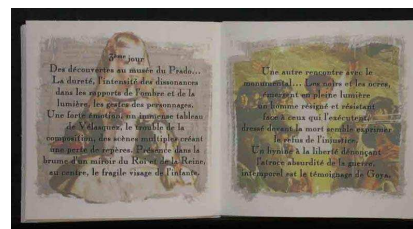 3ème jour
Des découvertes au musée du Prado...
La dureté, l'intensité des dissonances
dans les rapports de l'ombre et de la
lumière, les gestes des personnages.
Une forte émotion, un immense tableau
de Vélasquez, le trouble de la
composition, des scènes multiples créant
une perte de repères. Présence dans la
brume d'un miroir du Roi et de la Reine,
au centre, le fragile visage de l'infante.
Une autre rencontre avec le
monumental... Les noirs et les ocres,
émergent en pleine lumière
un homme résigné et résistant
face à ceux qui l'exécutent,
dressé devant la mort semble exprimer
le refus de l'injustice.
Un hymne à la liberté dénonçant
l'atroce absurdité de la guerre,
intemporel est le témoignage de Goya.